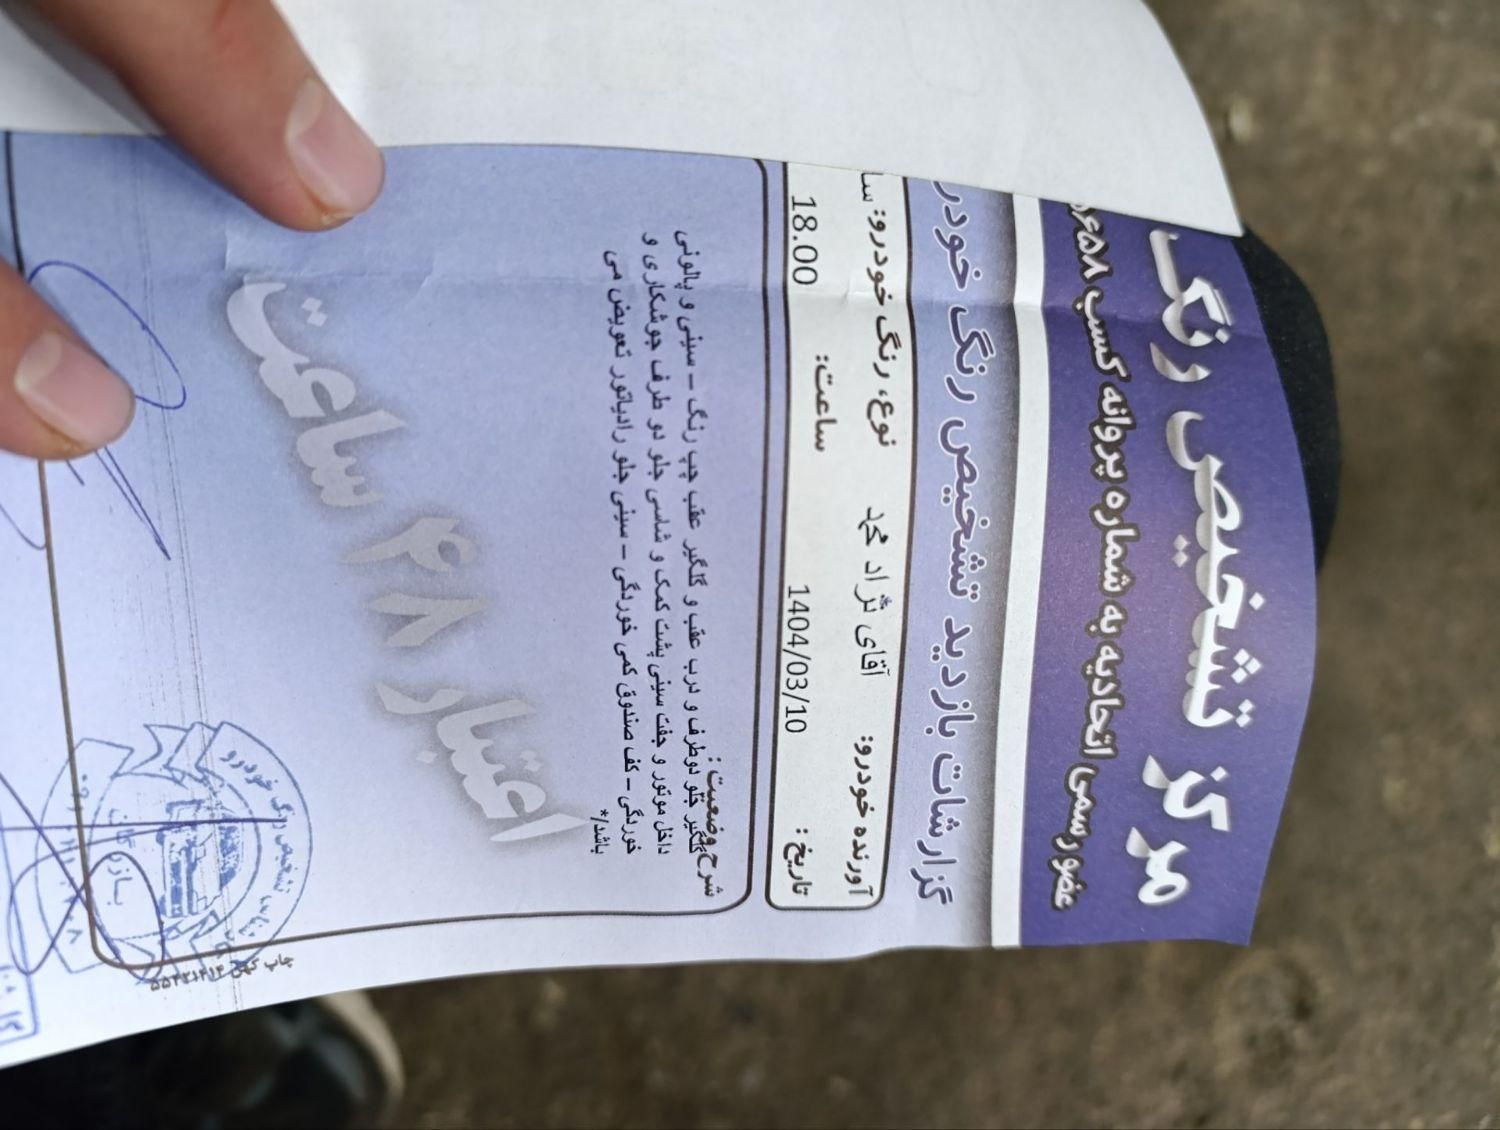 مرکز تشخیص رنگ
عضو رسمی اتحادیه به شماره پروانه کسب ۵۶۵۸
گزارشات بازدید تشخیص رنگ خودر
آورنده خودرو: آقای نژاد محمد نوع، رنگ خودرو: سا
تاریخ : 1404/03/10 ساعت: 18.00
شرح وضعیت :
گلگیر جلو دوطرف و درب عقب و گلگیر عقب چپ رنگ – سینی و پالونی
داخل موتور و جفت سینی پشت کمک و شاسی جلو دو طرف جوشکاری و
خوردگی – کف صندوق کمی خوردگی – سینی جلو رادیاتور تعویض می
باشد/*
اعتبار ۴۸ ساعت
چاپ کهن